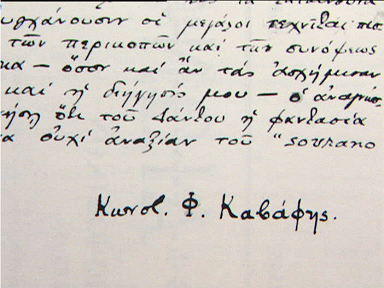 τυγχάνουσιν οἱ μεγάλοι τεχνῖται
τῶν περικοπῶν καὶ τῆς συνόψεως
κα — ὅσον καὶ ἂν τὰς ἀσχήμισαν
καὶ ἡ διήγησίς μου — ὁ ἀναγνώσ
ὅτι τοῦ Δάντου ἡ φαντασία
α οὐχὶ ἀναξίαν τοῦ "sovrano
Κωνσ. Φ. Καβάφης.